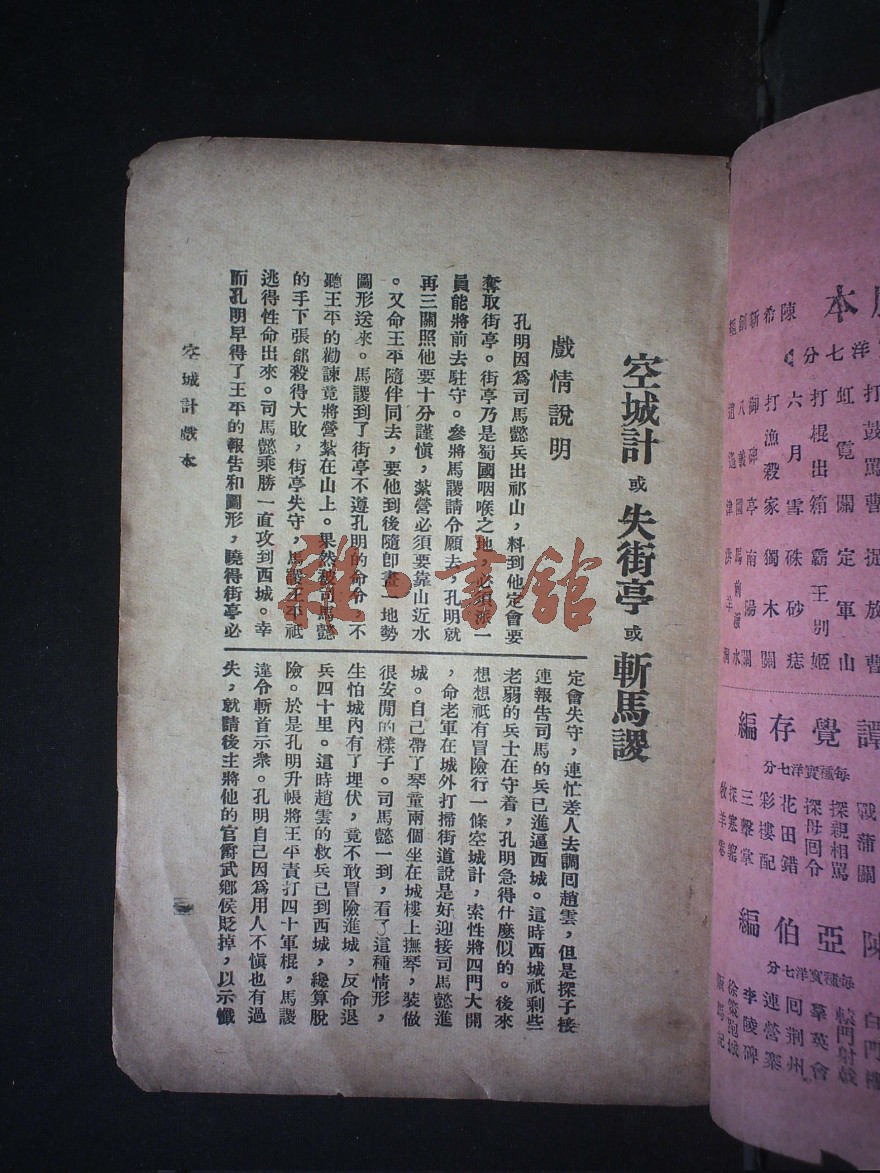 空城計或失街亭或斬馬謖
戲情說明
孔明因爲司馬懿兵出祁山，料到他定會要
奪取街亭。街亭乃是蜀國咽喉之地，必須派一
員能將前去駐守。參將馬謖請令願去，孔明就
再三關照他要十分謹愼，紮營必須要靠山近水
。又命王平隨伴同去，要他到後隨卽畫一地勢
圖形送來。馬謖到了街亭不遵孔明的命令，不
聽王平的勸諫竟將營紮在山上。果然被司馬懿
的手下張郃殺得大敗，街亭失守，馬謖王平祇
逃得性命出來。司馬懿乘勝一直攻到西城。幸
而孔明早得了王平的報吿和圖形，曉得街亭必
定會失守，連忙差人去調囘趙雲，但是探子接
連報吿司馬的兵已進逼西城。這時西城祇剩些
老弱的兵士在守着，孔明急得什麼似的。後來
想想祇有冒險行一條空城計，索性將四門大開
，命老軍在城外打掃街道說是好迎接司馬懿進
城。自己帶了琴童兩個坐在城樓上撫琴，裝做
很安閒的樣子。司馬懿一到，看了這種情形，
生怕城內有了埋伏，竟不敢冒險進城，反命退
兵四十里。這時趙雲的救兵已到西城，纔算脫
險。於是孔明升帳將王平責打四十軍棍，馬謖
違令斬首示衆。孔明自己因爲用人不愼也有過
失，就請後主將他的官爵武鄉侯貶掉，以示懺
空城計戲本
一
雜·書館
本
洋七分
陳希新創
打鼓罵曹 捉放曹
虹霓關 定軍山
打棍出箱 霸王別姬
六月雪 硃砂痣
打漁殺家 獨木關
御碑亭 南陽關
譚覺存編
每種實洋七分
戰蒲關
探親相罵
探母回令
花田錯
彩樓配
三擊掌
探寒窰
牧羊卷
陳亞伯編
每種實洋七分
白門樓
轅門射戟
羣英會
回荆州
連營寨
李陵碑
徐策跑城